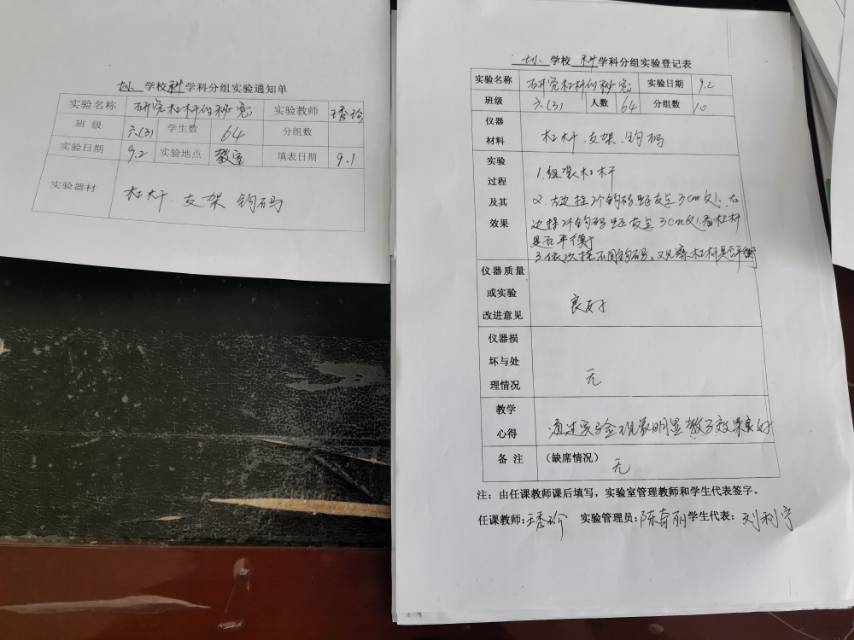 学校 科学 学科分组实验通知单
实验名称 研究杠杆的秘密 实验教师
班级 六(3) 学生数 64 分组数
实验日期 9.2 实验地点 教室 填表日期 9.1
实验器材 杠杆 支架 钩码
学校 科学 学科分组实验登记表
实验名称 研究杠杆的秘密 实验日期 9.2
班级 六(3) 人数 64 分组数 10
仪器
材料 杠杆、支架、钩码
实验
过程
及其
效果
1.组装杠杆
2.左边挂2个钩码距支点3cm处,右
边挂2个钩码距支点3cm处,看杠杆
是否平衡
3.依次挂不同钩码,观察杠杆是否平衡
仪器质量
或实验
改进意见
良好
仪器损
坏与处
理情况
无
教学
心得
通过实验现象明显教学效果良好
备注 (缺席情况) 无
注:由任课教师课后填写,实验室管理教师和学生代表签字。
任课教师: 实验管理员: 学生代表:刘利宇